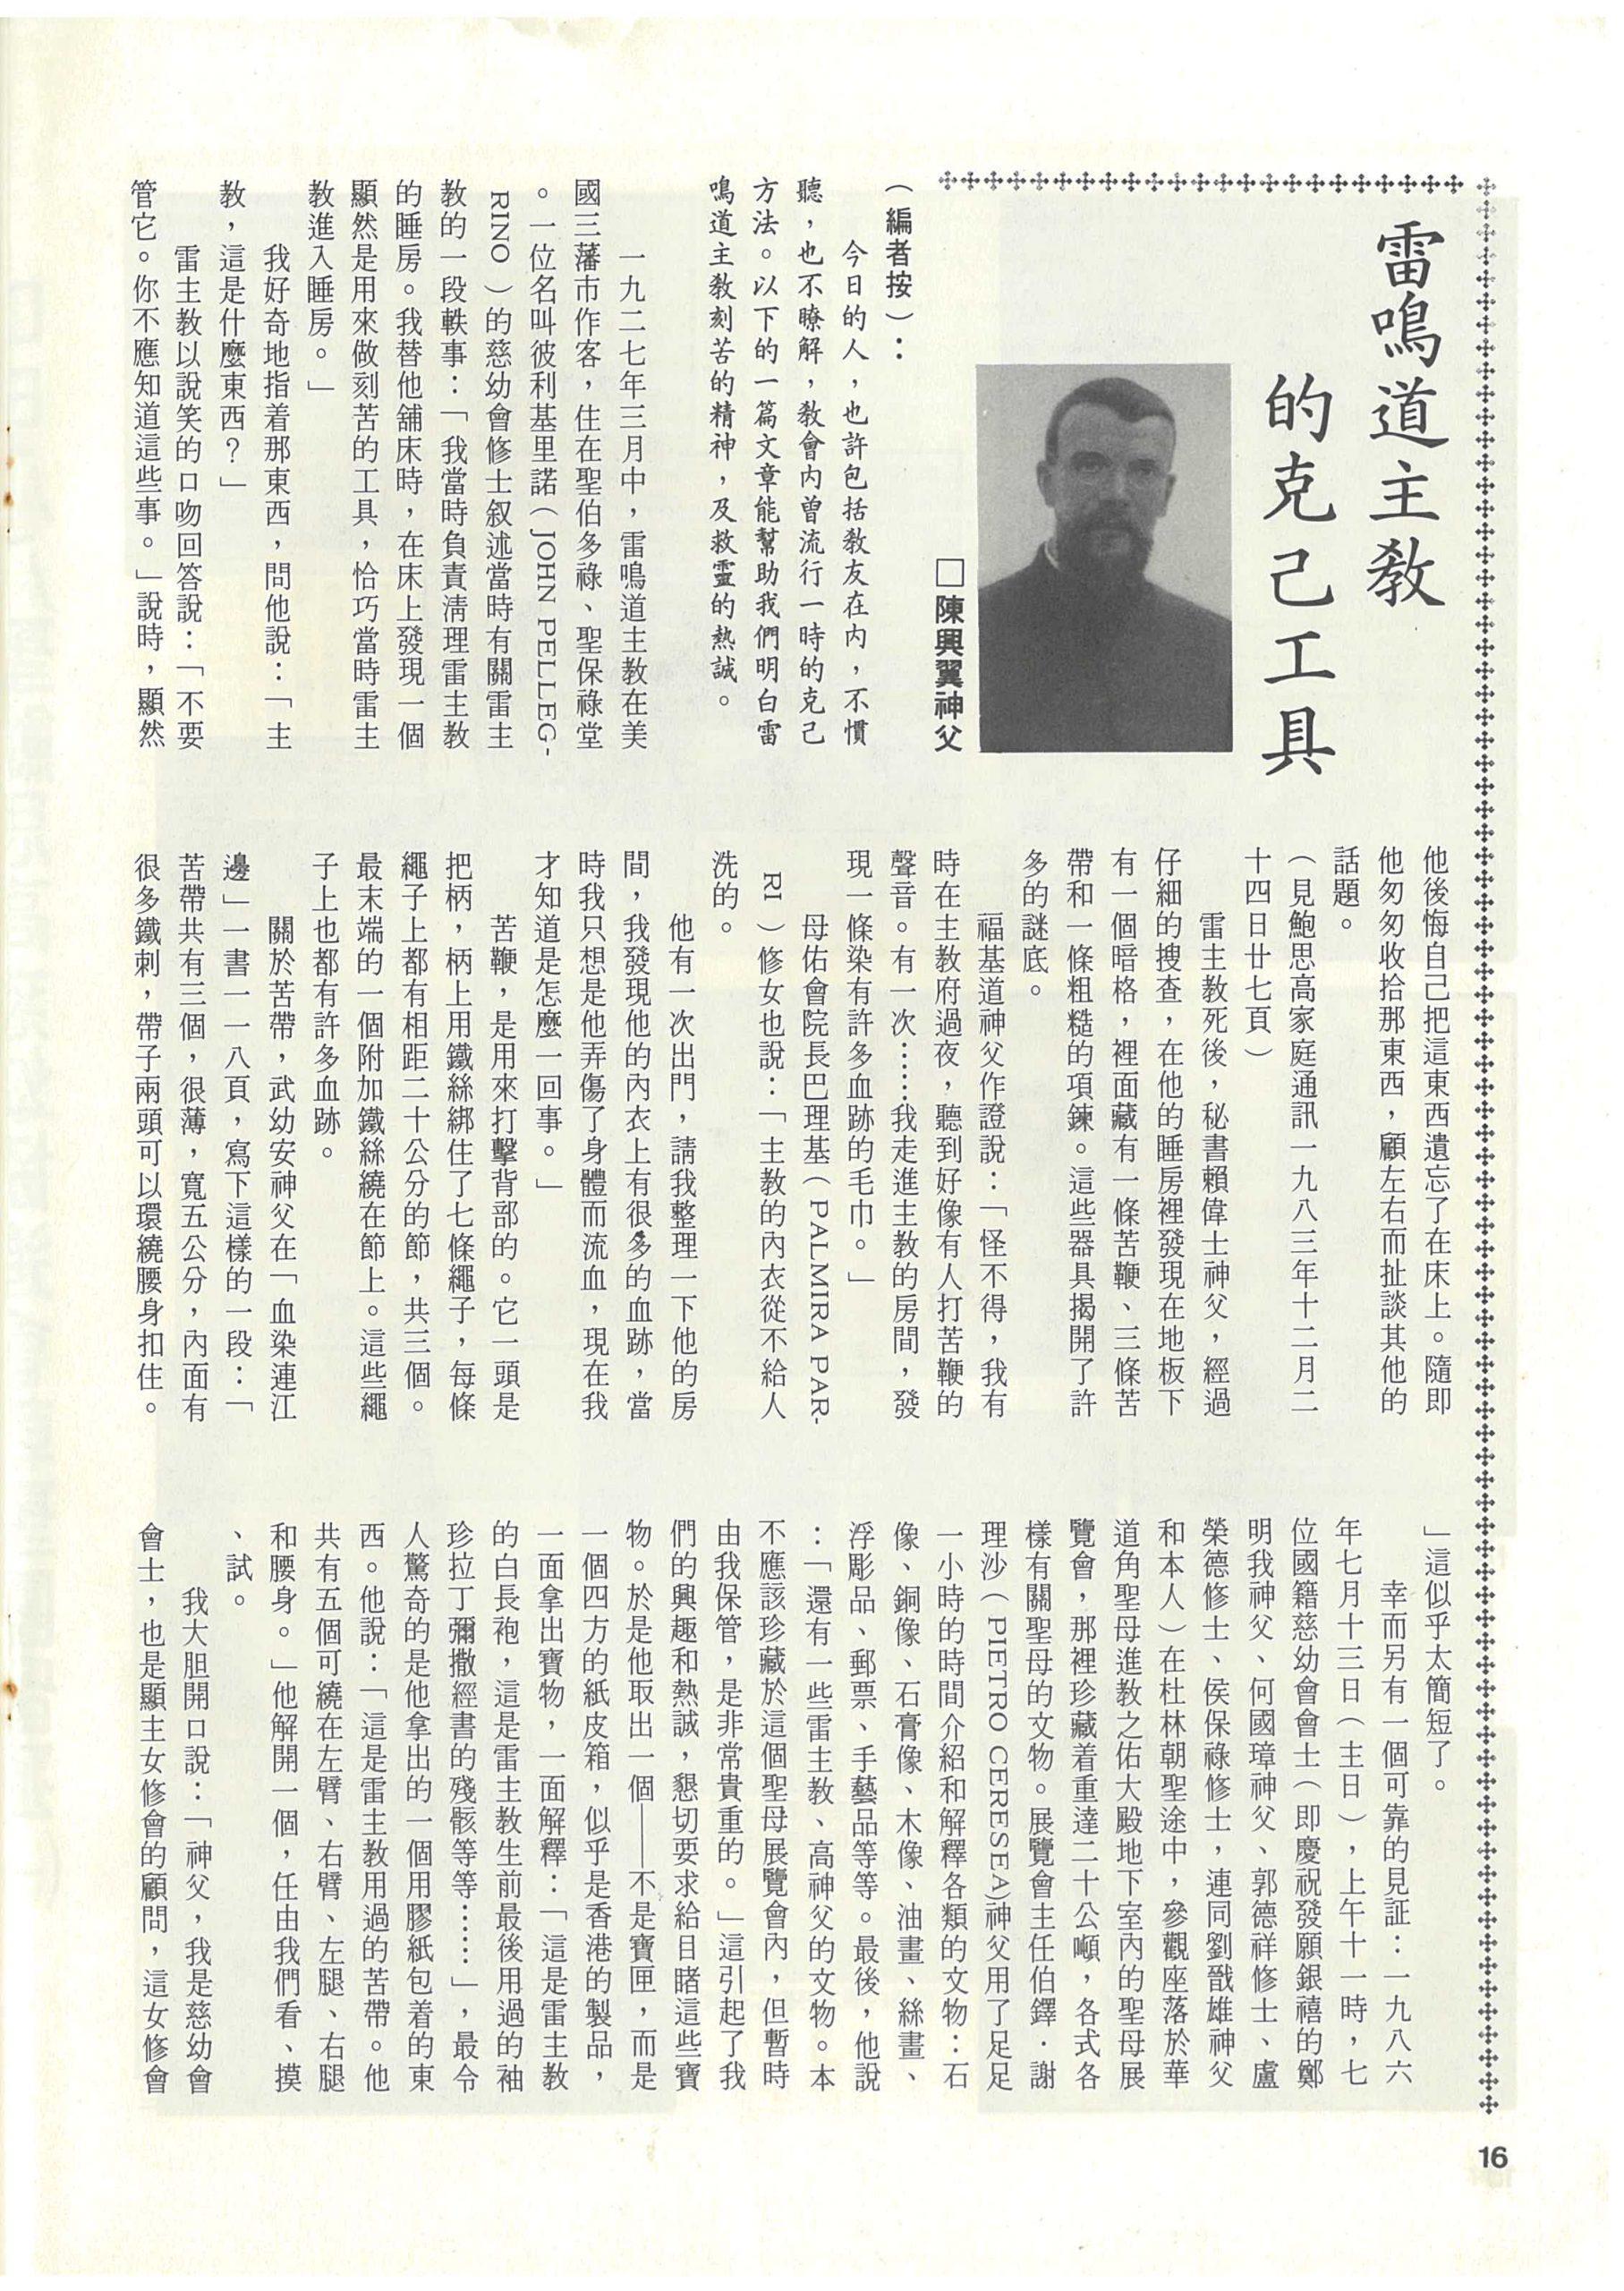 雷鳴道主教
的克己工具
□陳興翼神父
（編者按）：
今日的人，也許包括教友在內，不慣
聽，也不瞭解，教會內曾流行一時的克己
方法。以下的一篇文章能幫助我們明白雷
鳴道主教刻苦的精神，及救靈的熱誠。
一九二七年三月中，雷鳴道主教在美
國三藩市作客，住在聖伯多祿、聖保祿堂
。一位名叫彼利基里諾（JOHN PELLEG-
RINO）的慈幼會修士叙述當時有關雷主
教的一段軼事：「我當時負責清理雷主教
的睡房。我替他舖床時，在床上發現一個
顯然是用來做刻苦的工具，恰巧當時雷主
教進入睡房。」
我好奇地指着那東西，問他說：「主
教，這是什麼東西？」
雷主教以說笑的口吻回答說：「不要
管它。你不應知道這些事。」說時，顯然
他後悔自己把這東西遺忘了在床上。隨即
他匆匆收拾那東西，顧左右而扯談其他的
話題。
（見鮑思高家庭通訊一九八三年十二月二
十四日廿七頁）
雷主教死後，秘書賴偉士神父，經過
仔細的搜查，在他的睡房裡發現在地板下
有一個暗格，裡面藏有一條苦鞭、三條苦
帶和一條粗糙的項鍊。這些器具揭開了許
多的謎底。
福基道神父作證說：「怪不得，我有
時在主教府過夜，聽到好像有人打苦鞭的
聲音。有一次……我走進主教的房間，發
現一條染有許多血跡的毛巾。」
母佑會院長巴理基（PALMIRA PAR-
RI）修女也說：「主教的內衣從不給人
洗的。
他有一次出門，請我整理一下他的房
間，我發現他的內衣上有很多的血跡，當
時我只想是他弄傷了身體而流血，現在我
才知道是怎麼一回事。」
苦鞭，是用來打擊背部的。它一頭是
把柄，柄上用鐵絲綁住了七條繩子，每條
繩子上都有相距二十公分的節，共三個。
最末端的一個附加鐵絲繞在節上。這些繩
子上也都有許多血跡。
關於苦帶，武幼安神父在「血染連江
邊」一書一一八頁，寫下這樣的一段：「
苦帶共有三個，很薄，寬五公分，內面有
很多鐵刺，帶子兩頭可以環繞腰身扣住。
」這似乎太簡短了。
幸而另有一個可靠的見証：一九八六
年七月十三日（主日），上午十一時，七
位國籍慈幼會會士（即慶祝發願銀禧的鄭
明我神父、何國璋神父、郭德祥修士、盧
榮德修士、侯保祿修士，連同劉戩雄神父
和本人）在杜林朝聖途中，參觀座落於華
道角聖母進教之佑大殿地下室內的聖母展
覽會，那裡珍藏着重達二十公噸，各式各
樣有關聖母的文物。展覽會主任伯鐸．謝
理沙（PIETRO CERESEA)神父用了足足
一小時的時間介紹和解釋各類的文物：石
像、銅像、石膏像、木像、油畫、絲畫、
浮彫品、郵票、手藝品等等。最後，他說
：「還有一些雷主教、高神父的文物。本
不應該珍藏於這個聖母展覽會內，但暫時
由我保管，是非常貴重的。」這引起了我
們的興趣和熱誠，懇切要求給目睹這些寶
物。於是他取出一個——不是寶匣，而是
一個四方的紙皮箱，似乎是香港的製品，
一面拿出寶物，一面解釋：「這是雷主教
的白長袍，這是雷主教生前最後用過的袖
珍拉丁彌撒經書的殘骸等等……」，最令
人驚奇的是他拿出的一個用膠紙包着的東
西。他說：「這是雷主教用過的苦帶。他
共有五個可繞在左臂、右臂、左腿、右腿
和腰身。」他解開一個，任由我們看、摸
、試。
我大胆開口說：「神父，我是慈幼會
會士，也是顯主女修會的顧問，這女修會
16